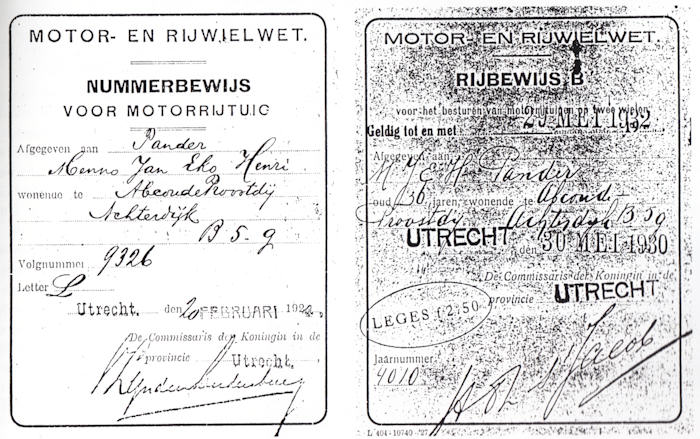 MOTOR- EN RIJWIELWET.
NUMMERBEWIJS
VOOR MOTORRIJTUIG
Afgegeven aan Pander
Menno Jan Eko Henri
wonende te Abcoude Proostdij
Achterdijk
B 5 g
Volgnummer 9326
Letter L
Utrecht. den 20 FEBRUARI
De Commissaris der Koningin in de
provincie Utrecht.
MOTOR- EN RIJWIELWET.
RIJBEWIJS B
voor het besturen van motorrijtuigen op twee wielen
Geldig tot en met 29 MEI 1932
Afgegeven aan
M J E H Pander
oud 36 jaren, wonende te Abcoude-
Proostdij B 59
UTRECHT den 30 MEI 1930
De Commissaris der Koningin in de
provincie UTRECHT
LEGES f 2.50
Jaarnummer
4010.
s'Jacob
L 404 - 10740 - '27